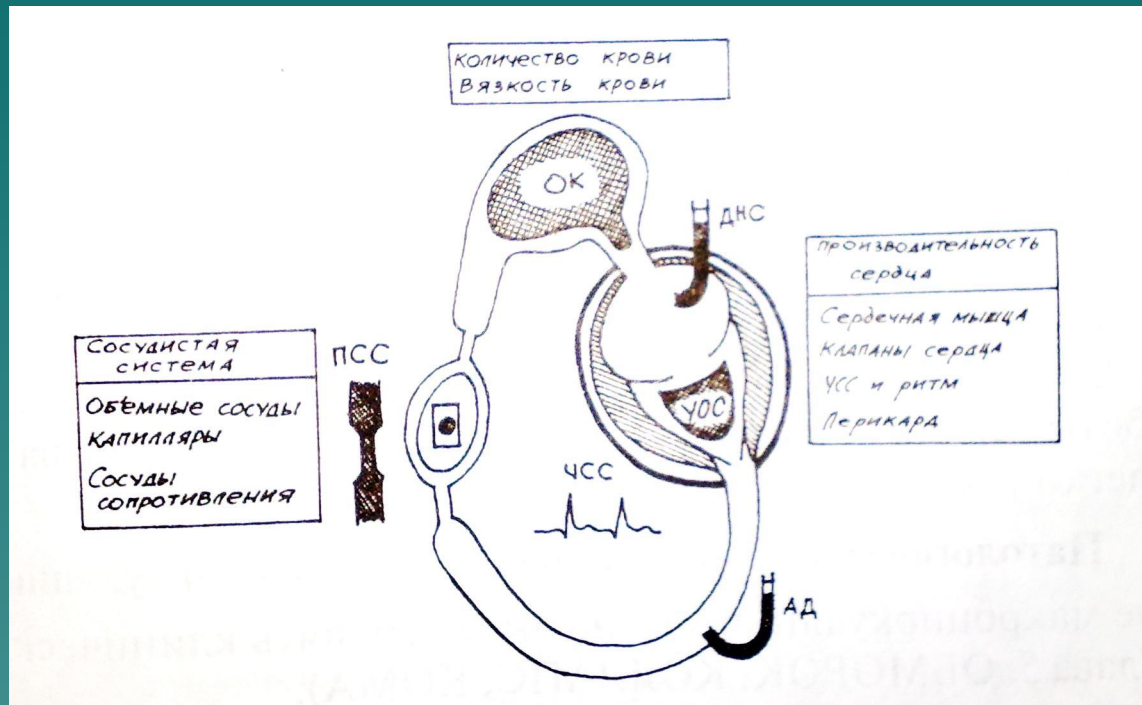 Количество крови
Вязкость крови
ОК
ДНС
Производительность
сердца
Сердечная мышца
Клапаны сердца
ЧСС и ритм
Перикард
Сосудистая
система
Объемные сосуды
Капилляры
Сосуды
сопротивления
ПСС
УОС
ЧСС
АД